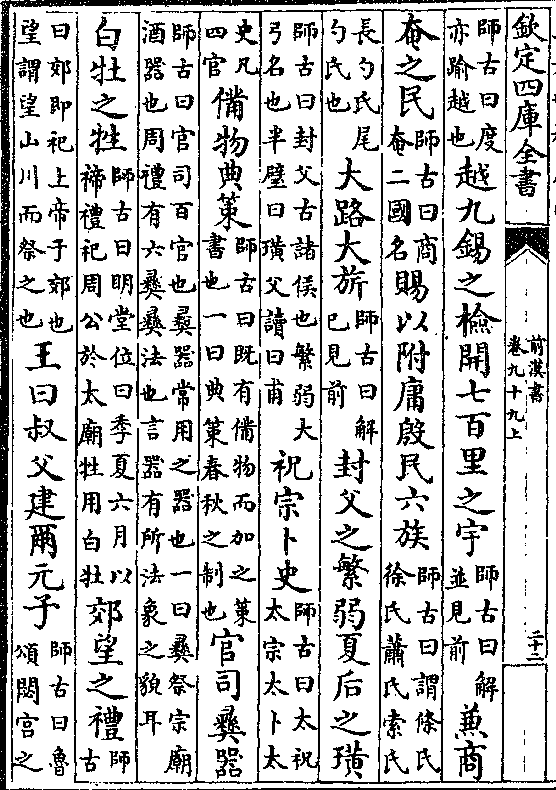 欽定四庫全書
前漢書
卷九十九上
二十二
師古曰度亦踰越也越九錫之檢開七百里之宇師古曰解並見前兼商
奄之民師古曰商奄二國名賜以附庸殷民六族師古曰謂條氏徐氏蕭氏索氏
長勺氏尾勺氏也大路大旂師古曰解已見前封父之繁弱夏后之璜
師古曰封父古諸侯也繁弱大弓名也半璧曰璜父讀曰甫祝宗卜史師古曰太祝太宗太卜太
史凡四官備物典策師古曰既有備物而加之策書也一曰典策春秋之制也官司彞器
師古曰官司百官也彞器常用之器也一曰彞祭宗廟酒器也周禮有六彞彞法也言器有所法象之貌耳
白牡之牲師古曰明堂位曰季夏六月以禘禮祀周公於太廟牲用白牡郊望之禮師古
曰郊即祀上帝子郊也望謂望山川而祭之也王曰叔父建爾元子師古曰魯頌閟宮之